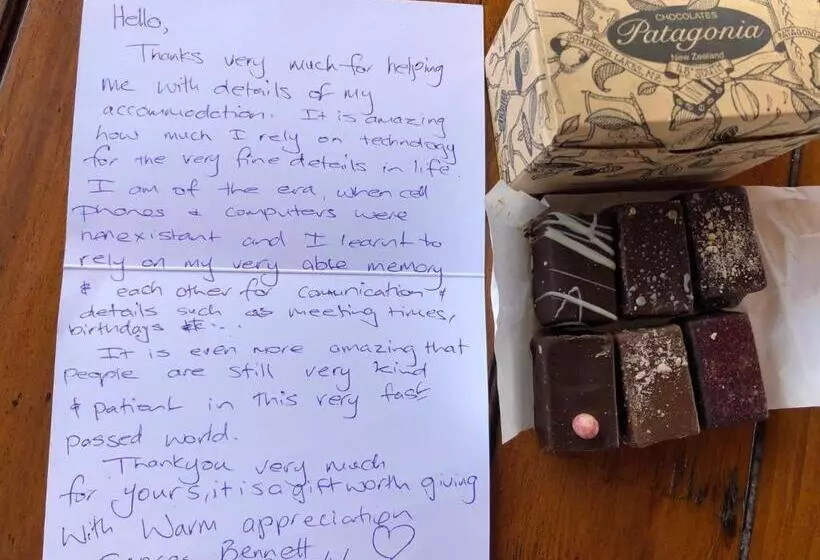 Hello,
Thanks very much for helping
me with details of my
accommodation. It is amazing
how much I rely on technology
for the very fine details in life.
I am of the era, when cell
phones & computers were
nonexistant and I learnt to
rely on my very able memory
& each other for comunication &
details such as meeting times,
birthdays
It is even more amazing that
people are still very kind
& patient in this very fast
passed world.
Thankyou very much
for yours, it is a gift worth giving
With Warm appreciation
Bennett
CHOCOLATES
Patagonia
New Zealand
SOUTHERN LAKES, NZ
PATAGONIA